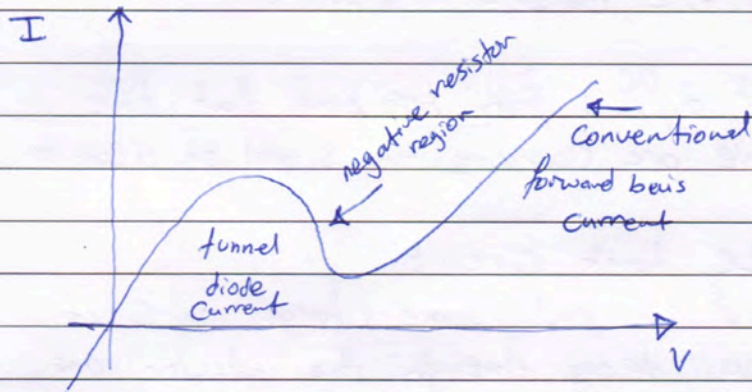 I
negative resistor
region
Conventional
forward beis
current
tunnel
diode
Current
V